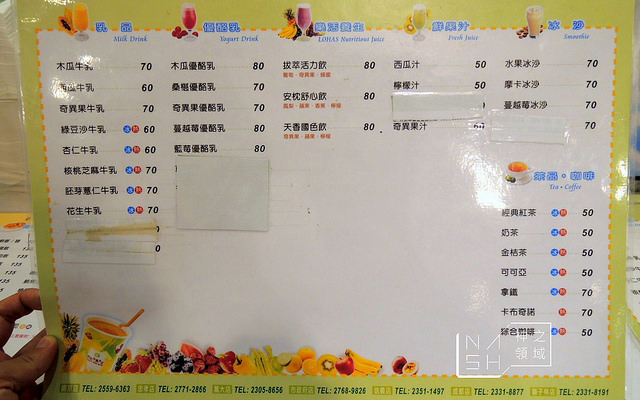 乳品
Milk Drink
木瓜牛乳 70
西瓜牛乳 60
奇異果牛乳 70
綠豆沙牛乳 冰 熱 60
杏仁牛乳 冰 熱 60
核桃芝麻牛乳 冰 熱 70
胚芽薏仁牛乳 冰 熱 70
花生牛乳 冰 熱 70
0
0
優酪乳
Yogurt Drink
木瓜優酪乳 80
桑椹優酪乳 70
奇異果優酪乳 70
蔓越莓優酪乳 80
藍莓優酪乳 80
樂活養生
LOHAS Nutritious Juice
拔萃活力飲 80
葡萄、奇異果、蜂蜜
安枕舒心飲 80
鳳梨、蘋果、香蕉、檸檬
天香國色飲 80
奇異果、蘋果、檸檬
鮮果汁
Fresh Juice
西瓜汁 50
檸檬汁 50
奇異果汁 60
冰沙
Smoothie
水果冰沙 70
摩卡冰沙 70
蔓越莓冰沙 70
70
茶品。咖啡
Tea · Coffee
經典紅茶 冰 熱 50
奶茶 冰 熱 50
金桔茶 冰 熱 50
可可亞 冰 熱 50
拿鐵 冰 熱 70
卡布奇諾 熱 70
綜合咖啡 冰 熱 50
NASH 神之領域
TEL: 2559-6363
TEL: 2771-2866
TEL: 2305-8656
TEL: 2768-9826
TEL: 2351-1497
TEL: 2331-8877
TEL: 2331-8191
135
135
135